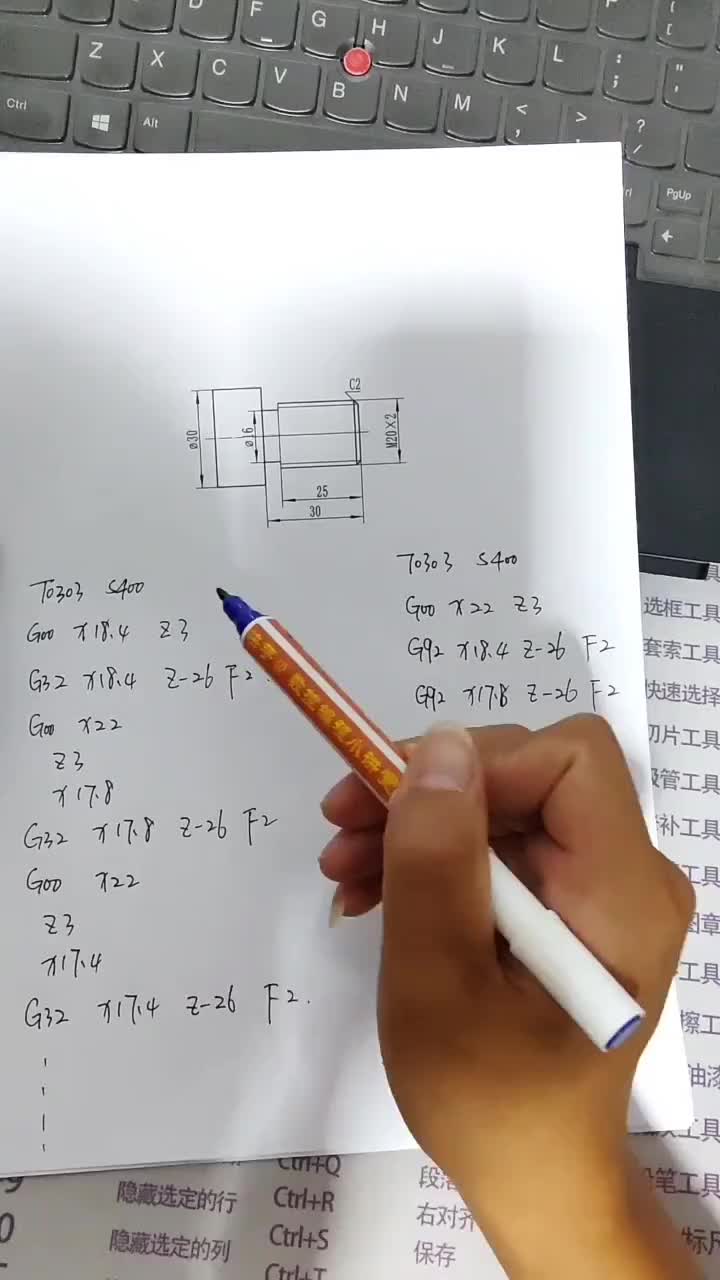 D
F
G
H
J
K
L
:
;
"
'
Z
X
C
V
B
N
M
<
,
>
.
?
/
Ctrl
Alt
PgUp
←
C2
ø30
ø16
M20×2
25
30
T0303 S400
G00 X18.4 Z3
G32 X18.4 Z-26 F2.
G00 X22
Z3
X17.8
G32 X17.8 Z-26 F2
G00 X22
Z3
X17.4
G32 X17.4 Z-26 F2.
T0303 S400
G00 X22 Z3
G92 X18.4 Z-26 F2
G92 X17.8 Z-26 F2
选框工具
套索工具
快速选择
切片工具
吸管工具
补工具
工具
图章
工具
擦工
油漆
工具
笔工具
标尺
Ctrl+Q
隐藏选定的行 Ctrl+R
右对齐
隐藏选定的列 Ctrl+S
保存
Ctrl+T